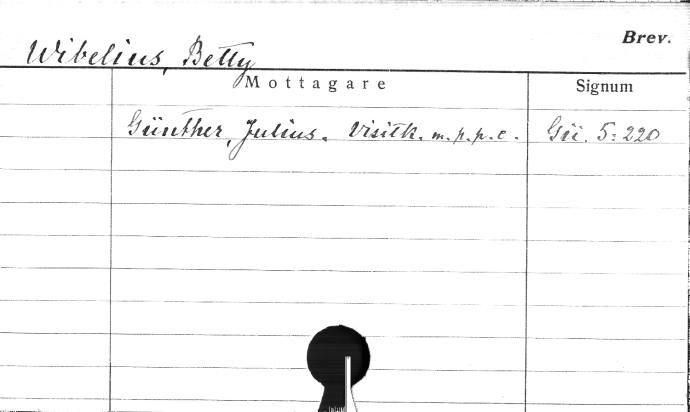 Brev.
Wibelius, Betty
Mottagare Signum
Günther, Julius. Visitk. m. p. p. c. Gü. 5:220